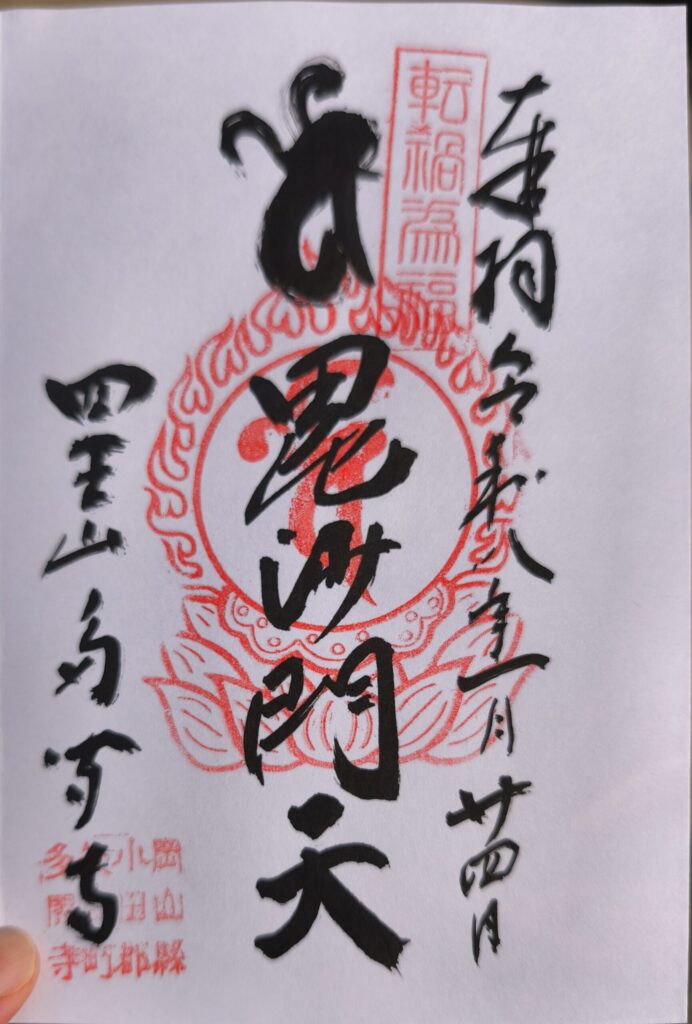 奉拝 令和八年一月廿四日
転禍為福
毘沙門天
四王山多聞寺
岡山縣
小田郡
町
多聞寺